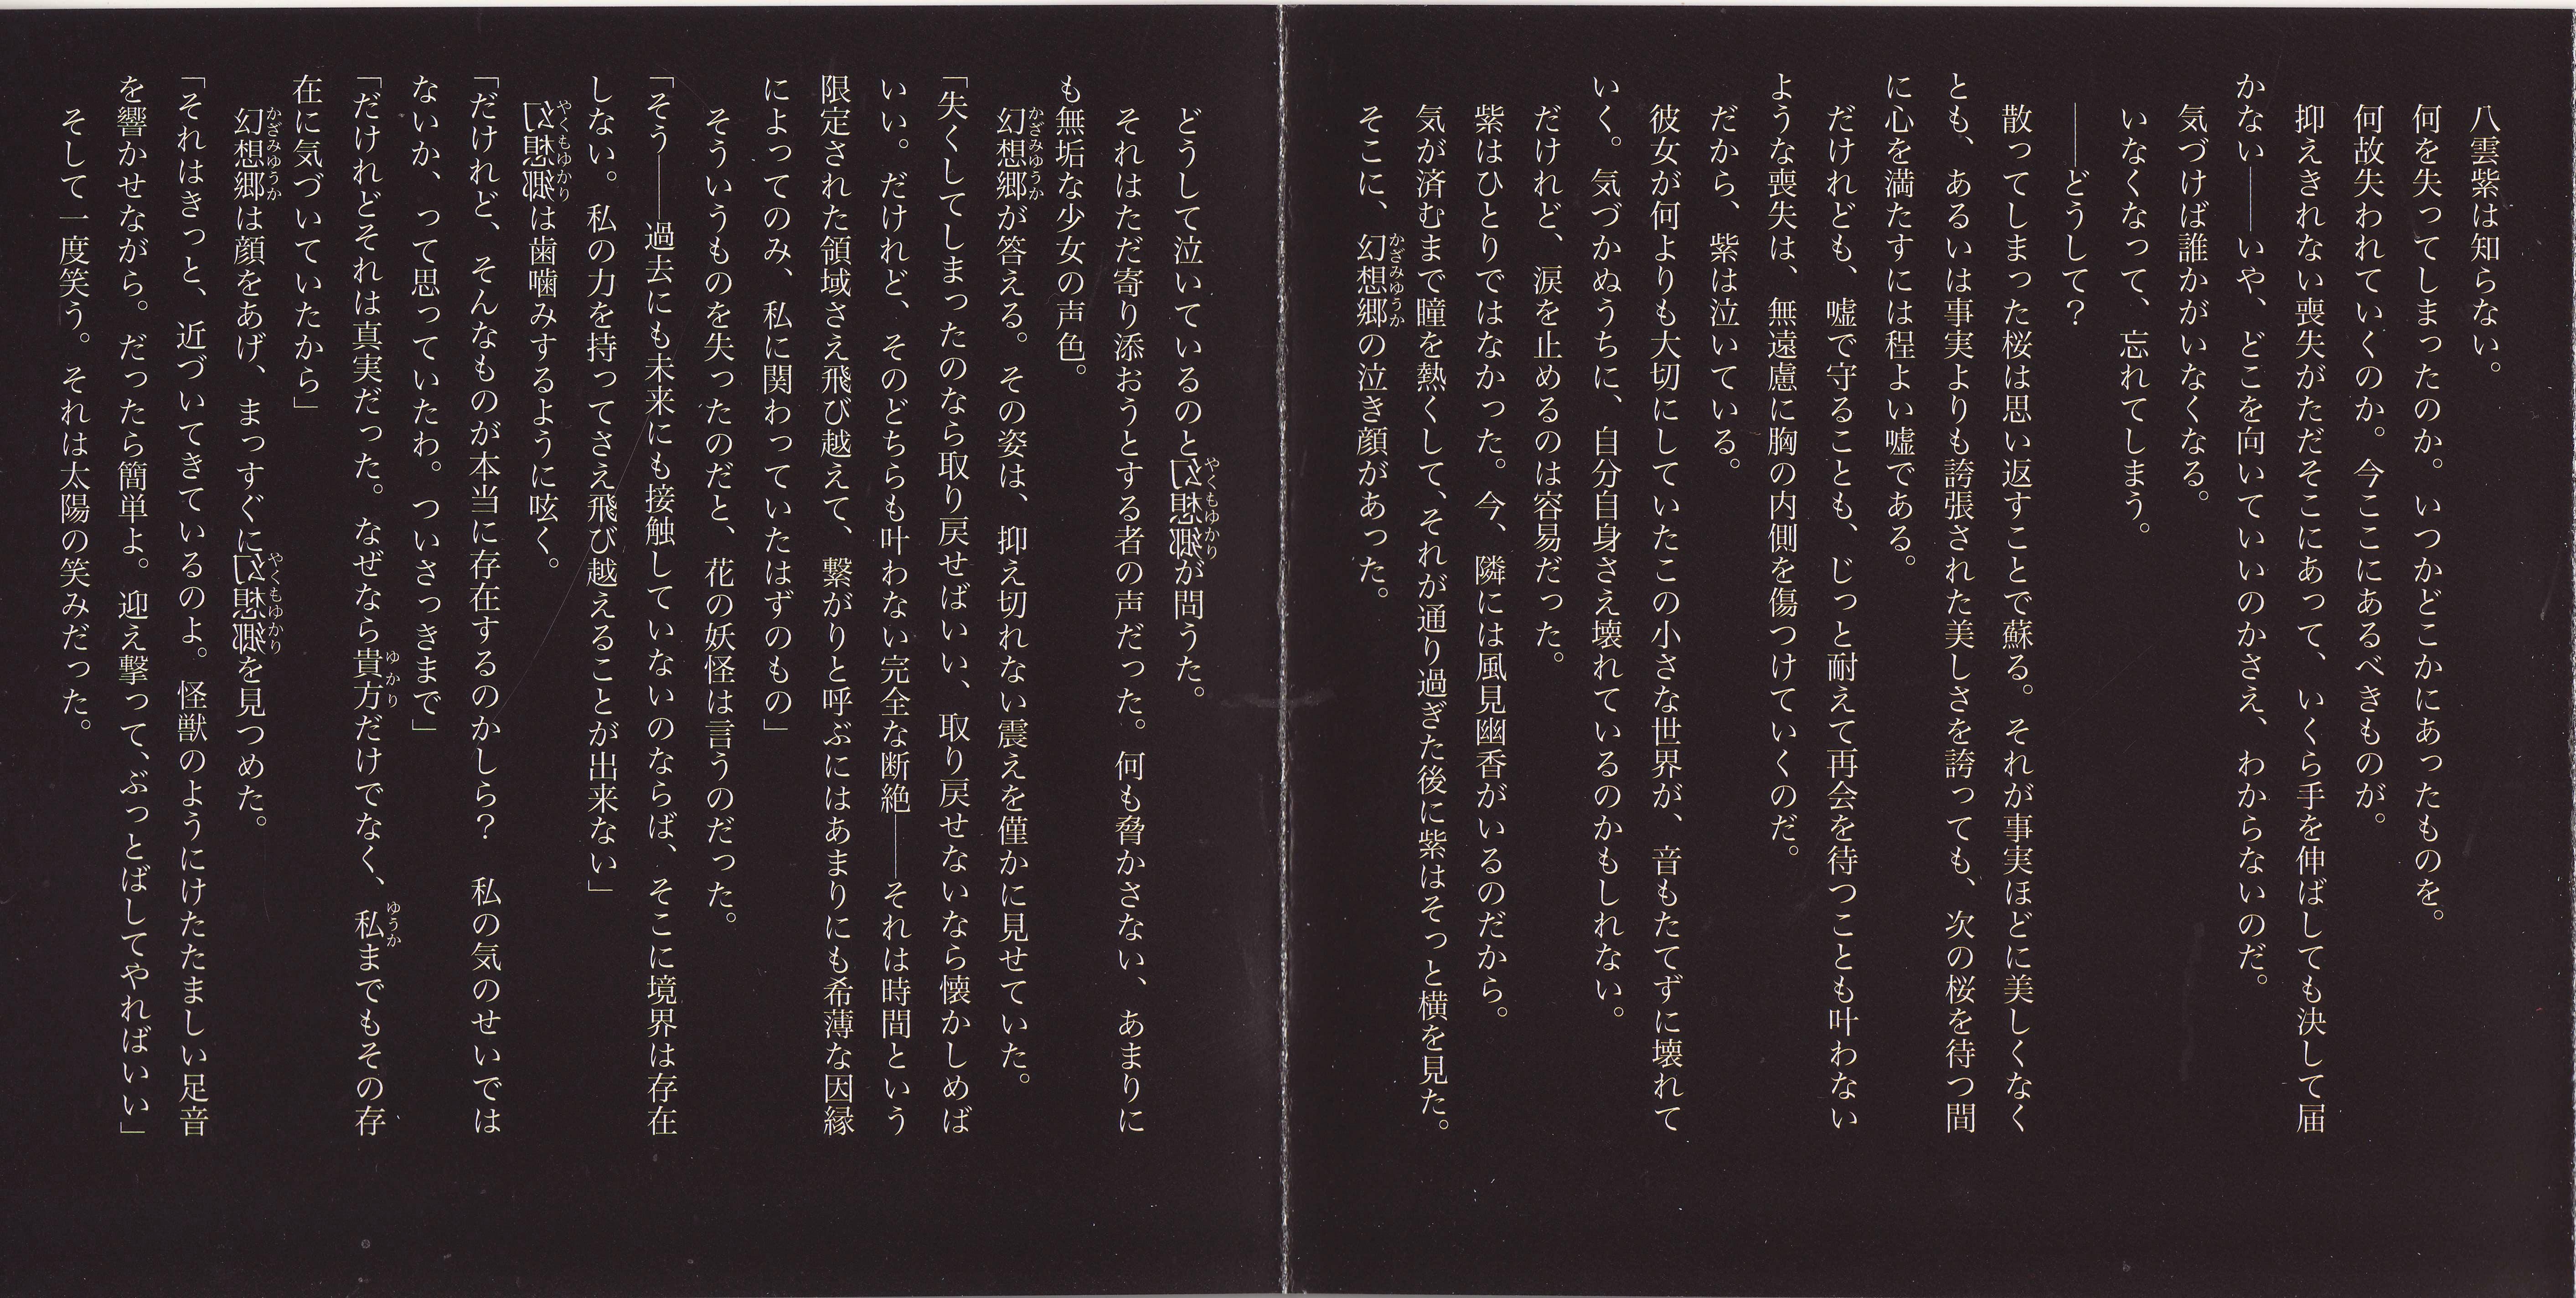 八雲紫は知らない。
何を失ってしまったのか。いつかどこかにあったものを。
何故失われていくのか。今ここにあるべきものが。
抑えきれない喪失がただそこにあって、いくら手を伸ばしても決して届
かない――いや、どこを向いていいのかさえ、わからないのだ。
気づけば誰かがいなくなる。
いなくなって、忘れてしまう。
――どうして？
散ってしまった桜は思い返すことで蘇る。それが事実ほどに美しくなく
とも、あるいは事実よりも誇張された美しさを誇っても、次の桜を待つ間
に心を満たすには程よい嘘である。
だけれども、嘘で守ることも、じっと耐えて再会を待つことも叶わない
ような喪失は、無遠慮に胸の内側を傷つけていくのだ。
だから、紫は泣いている。
彼女が何よりも大切にしていたこの小さな世界が、音もたてずに壊れて
いく。気づかぬうちに、自分自身さえ壊れているのかもしれない。
だけれど、涙を止めるのは容易だった。
紫はひとりではなかった。今、隣には風見幽香がいるのだから。
気が済むまで瞳を熱くして、それが通り過ぎた後に紫はそっと横を見た。
そこに、幻想郷（かざみゆうか）の泣き顔があった。
どうして泣いているのと幻想郷（やくもゆかり）が問うた。
それはただ寄り添おうとする者の声だった。何も脅かさない、あまりに
も無垢な少女の声色。
幻想郷（かざみゆうか）が答える。その姿は、抑え切れない震えを僅かに見せていた。
「失くしてしまったのなら取り戻せばいい、取り戻せないなら懐かしめば
いい。だけれど、そのどちらも叶わない完全な断絶――それは時間という
限定された領域さえ飛び越えて、繋がりと呼ぶにはあまりにも希薄な因縁
によってのみ、私に関わっていたはずのもの」
そういうものを失ったのだと、花の妖怪は言うのだった。
「そう――過去にも未来にも接触していないのならば、そこに境界は存在
しない。私の力を持ってさえ飛び越えることが出来ない」
幻想郷（やくもゆかり）は歯噛みするように呟く。
「だけれど、そんなものが本当に存在するのかしら？　私の気のせいでは
ないか、って思っていたわ。ついさっきまで」
「だけれどそれは真実だった。なぜなら貴方（ゆかり）だけでなく、私（ゆうか）までもその存
在に気づいていたから」
幻想郷（かざみゆうか）は顔をあげ、まっすぐに幻想郷（やくもゆかり）を見つめた。
「それはきっと、近づいてきているのよ。怪獣のようにけたたましい足音
を響かせながら。だったら簡単よ。迎え撃って、ぶっとばしてやればいい」
そして一度笑う。それは太陽の笑みだった。